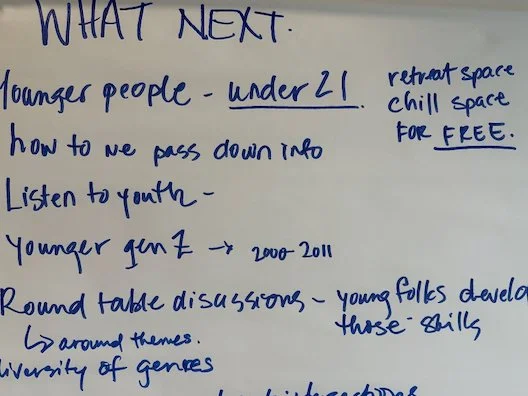 WHAT NEXT.
Younger people - under 21.
retreat space
chill space
FOR FREE.
how to we pass down info
Listen to youth -
Younger gen Z → 2000-2011
Round table discussions - young folks develo
those skills
↳ around themes.
iversity of genres